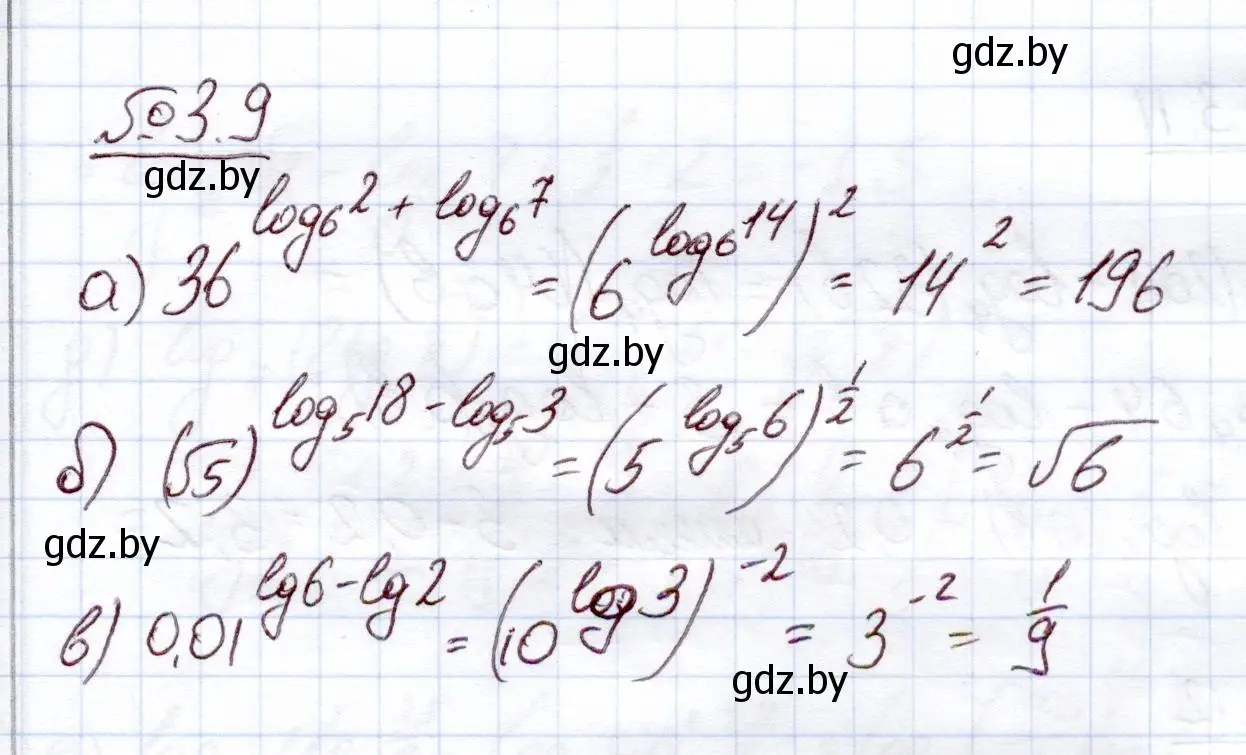 gdz.by
№3.9
gdz.by
а) 36^(log₆2 + log₆7) = (6^(log₆14))² = 14² = 196
gdz.by
б) (√5)^(log₅18 - log₅3) = (5^(log₅6))^(1/2) = 6^(1/2) = √6
gdz.by
в) 0,01^(lg6 - lg2) = (10^(log3))^(-2) = 3^(-2) = 1/9
gdz.by